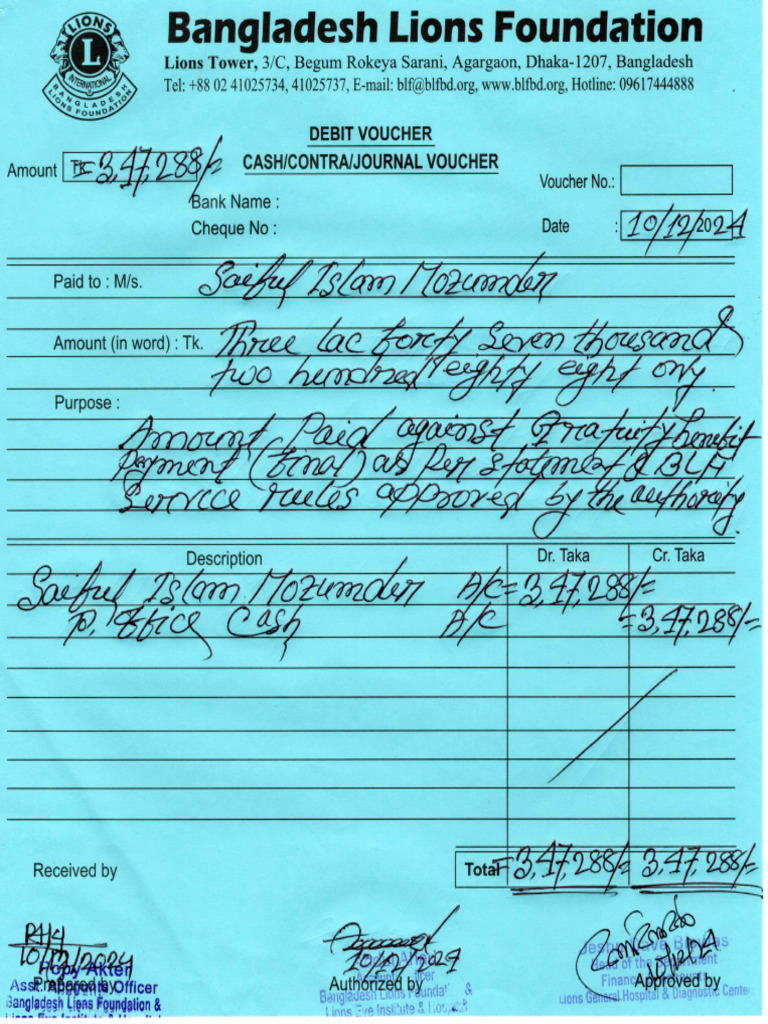 LIONS
L
INTERNATIONAL
BANGLADESH LIONS FOUNDATION
Bangladesh Lions Foundation
Lions Tower, 3/C, Begum Rokeya Sarani, Agargaon, Dhaka-1207, Bangladesh
Tel: +88 02 41025734, 41025737, E-mail: blf@blfbd.org, www.blfbd.org, Hotline: 09617444888
DEBIT VOUCHER
Amount TK= 3,47,288/= CASH/CONTRA/JOURNAL VOUCHER
Voucher No.:
Bank Name :
Cheque No : Date : 10/12/2024
Paid to : M/s. Saiful Islam Mozumder
Amount (in word) : Tk. Three lac forty Seven thousand
two hundred eighty eight only.
Purpose :
Amount Paid against Gratuity benefit
Payment (final) as Per statement & BLF
Service rules approved by the authority.
Description Dr. Taka Cr. Taka
Saiful Islam Mozumder A/C = 3,47,288/=
To. Office Cash A/C = 3,47,288/=
Received by Total = 3,47,288/= 3,47,288/=
10/12/2024 10/12/2024
Popy Akter
Asst. Accounts Officer
Prepared by Authorized by Approved by
Head of the Department
Bangladesh Lions Foundation & Bangladesh Lions Foundation & Lions General Hospital & Diagnostic Center
Lions Eye Institute & Hospital Lions Eye Institute & Hospital